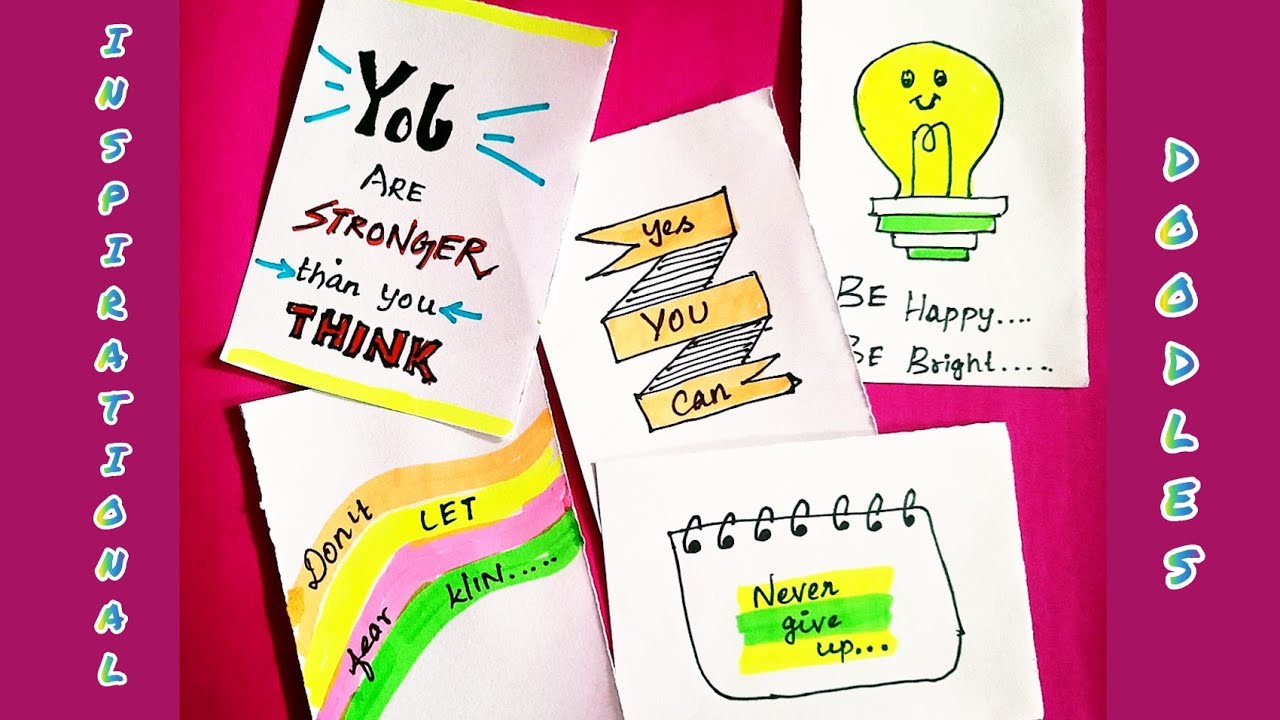 INSPIRATIONAL
YOU
ARE
STRONGER
than you
THINK
Yes
YOU
Can
BE Happy....
BE Bright.....
Don't LET
fear klIN.....
Never
give
up...
DOODLES